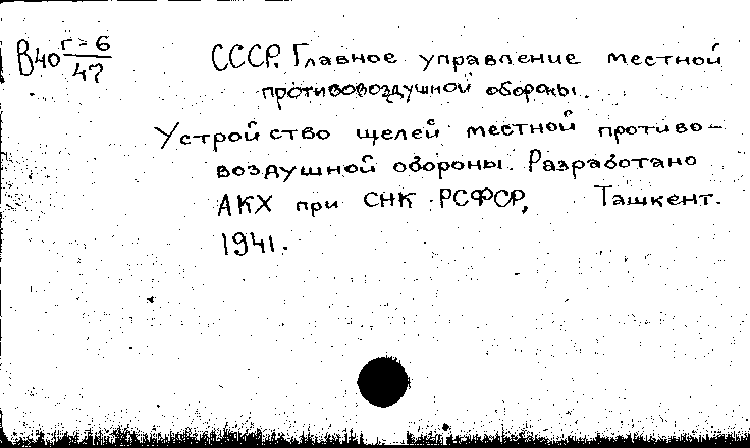 В40 г-6/47
СССР. Главное управление местной
противовоздушной обороны.
Устройство щелей местной противо-
воздушной обороны. Разработано
АКХ при СНК РСФСР, Ташкент.
1941.